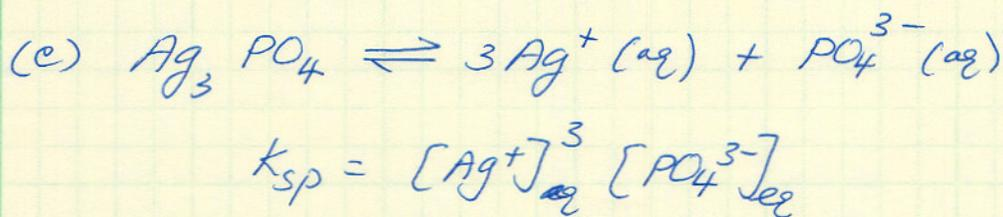 (e) Ag₃ PO₄ ⇌ 3 Ag⁺ (aq) + PO₄³⁻ (aq)
Ksp = [Ag⁺]³eq [PO₄³⁻]eq